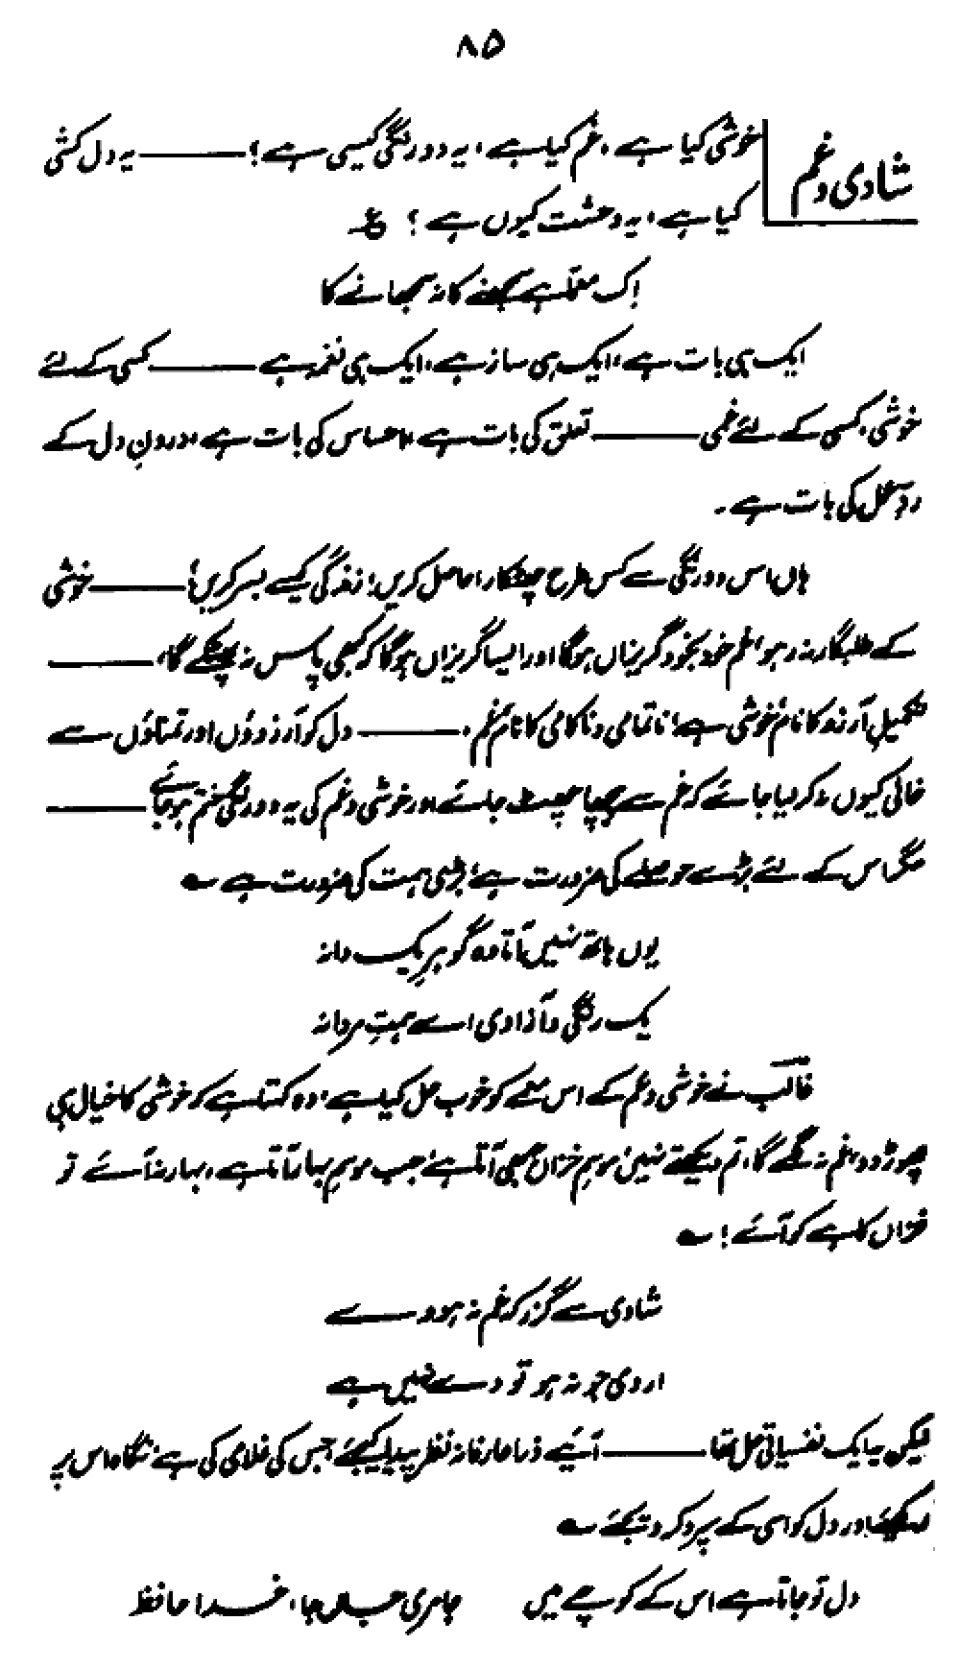 ۸۵
شادی و غم
خوشی کیا ہے، غم کیا ہے، یہ دو رنگی کیسی ہے؟ ——— یہ دل کشی
کیا ہے، یہ وحشت کیوں ہے؟ ع
اِک معمّا ہے سمجھنے کا نہ سمجھانے کا
ایک ہی بات ہے، ایک ہی ساز ہے، ایک ہی نغمہ ہے ——— کسی کے لئے
خوشی، کسی کے لئے غمی ——— تعلق کی بات ہے، احساس کی بات ہے، درونِ دل کے
ردِّ عمل کی بات ہے۔
ہاں اس دو رنگی سے کس طرح چھٹکارا حاصل کریں؛ زندگی کیسے بسر کریں؟ ——— خوشی
کے طلبگار نہ رہو، غم خود بخود گریزاں ہوگا اور ایسا گریزاں ہوگا کہ کبھی پاس نہ پھٹکے گا، ———
تکمیلِ آرزو کا نام خوشی ہے، ناتمامی و ناکامی کا نام غم، ——— دل کو آرزوؤں اور تمناؤں سے
خالی کیوں نہ کر لیا جائے کہ غم سے پیچھا چھٹ جائے اور خوشی و غم کی یہ دو رنگی ختم ہو جائے ———
مگر اس کے لئے بڑے حوصلے کی ضرورت ہے، بڑی ہمت کی ضرورت ہے ؎
یوں ہاتھ نہیں آتا وہ گوہرِ یک دانہ
یک رنگی و آزادی اے ہمتِ مردانہ
غالب نے خوشی و غم کے اس معمے کو خوب حل کیا ہے، وہ کہتا ہے کہ خوشی کا خیال ہی
چھوڑ دو، غم نہ لگے گا، تم دیکھتے نہیں، موسمِ خزاں جبھی آتا ہے، جب موسمِ بہار آتا ہے، بہار نہ آئے تو
خزاں کاہے کو آئے! ؎
شادی سے گزر کہ غم نہ ہووے
اردی جو نہ ہو تو دے نہیں ہے
لیکن یہ ایک نفسیاتی حل تھا ——— آئیے ذرا عارفانہ نظر پیدا کیجئے، جس کی غلامی کی ہے، نگاہ اس پر
رکھئے اور دل کو اسی کے سپرد کر دیجئے ؎
دل تو جاتا ہے اس کے کوچے میں جا مری جاں جا، خدا حافظ